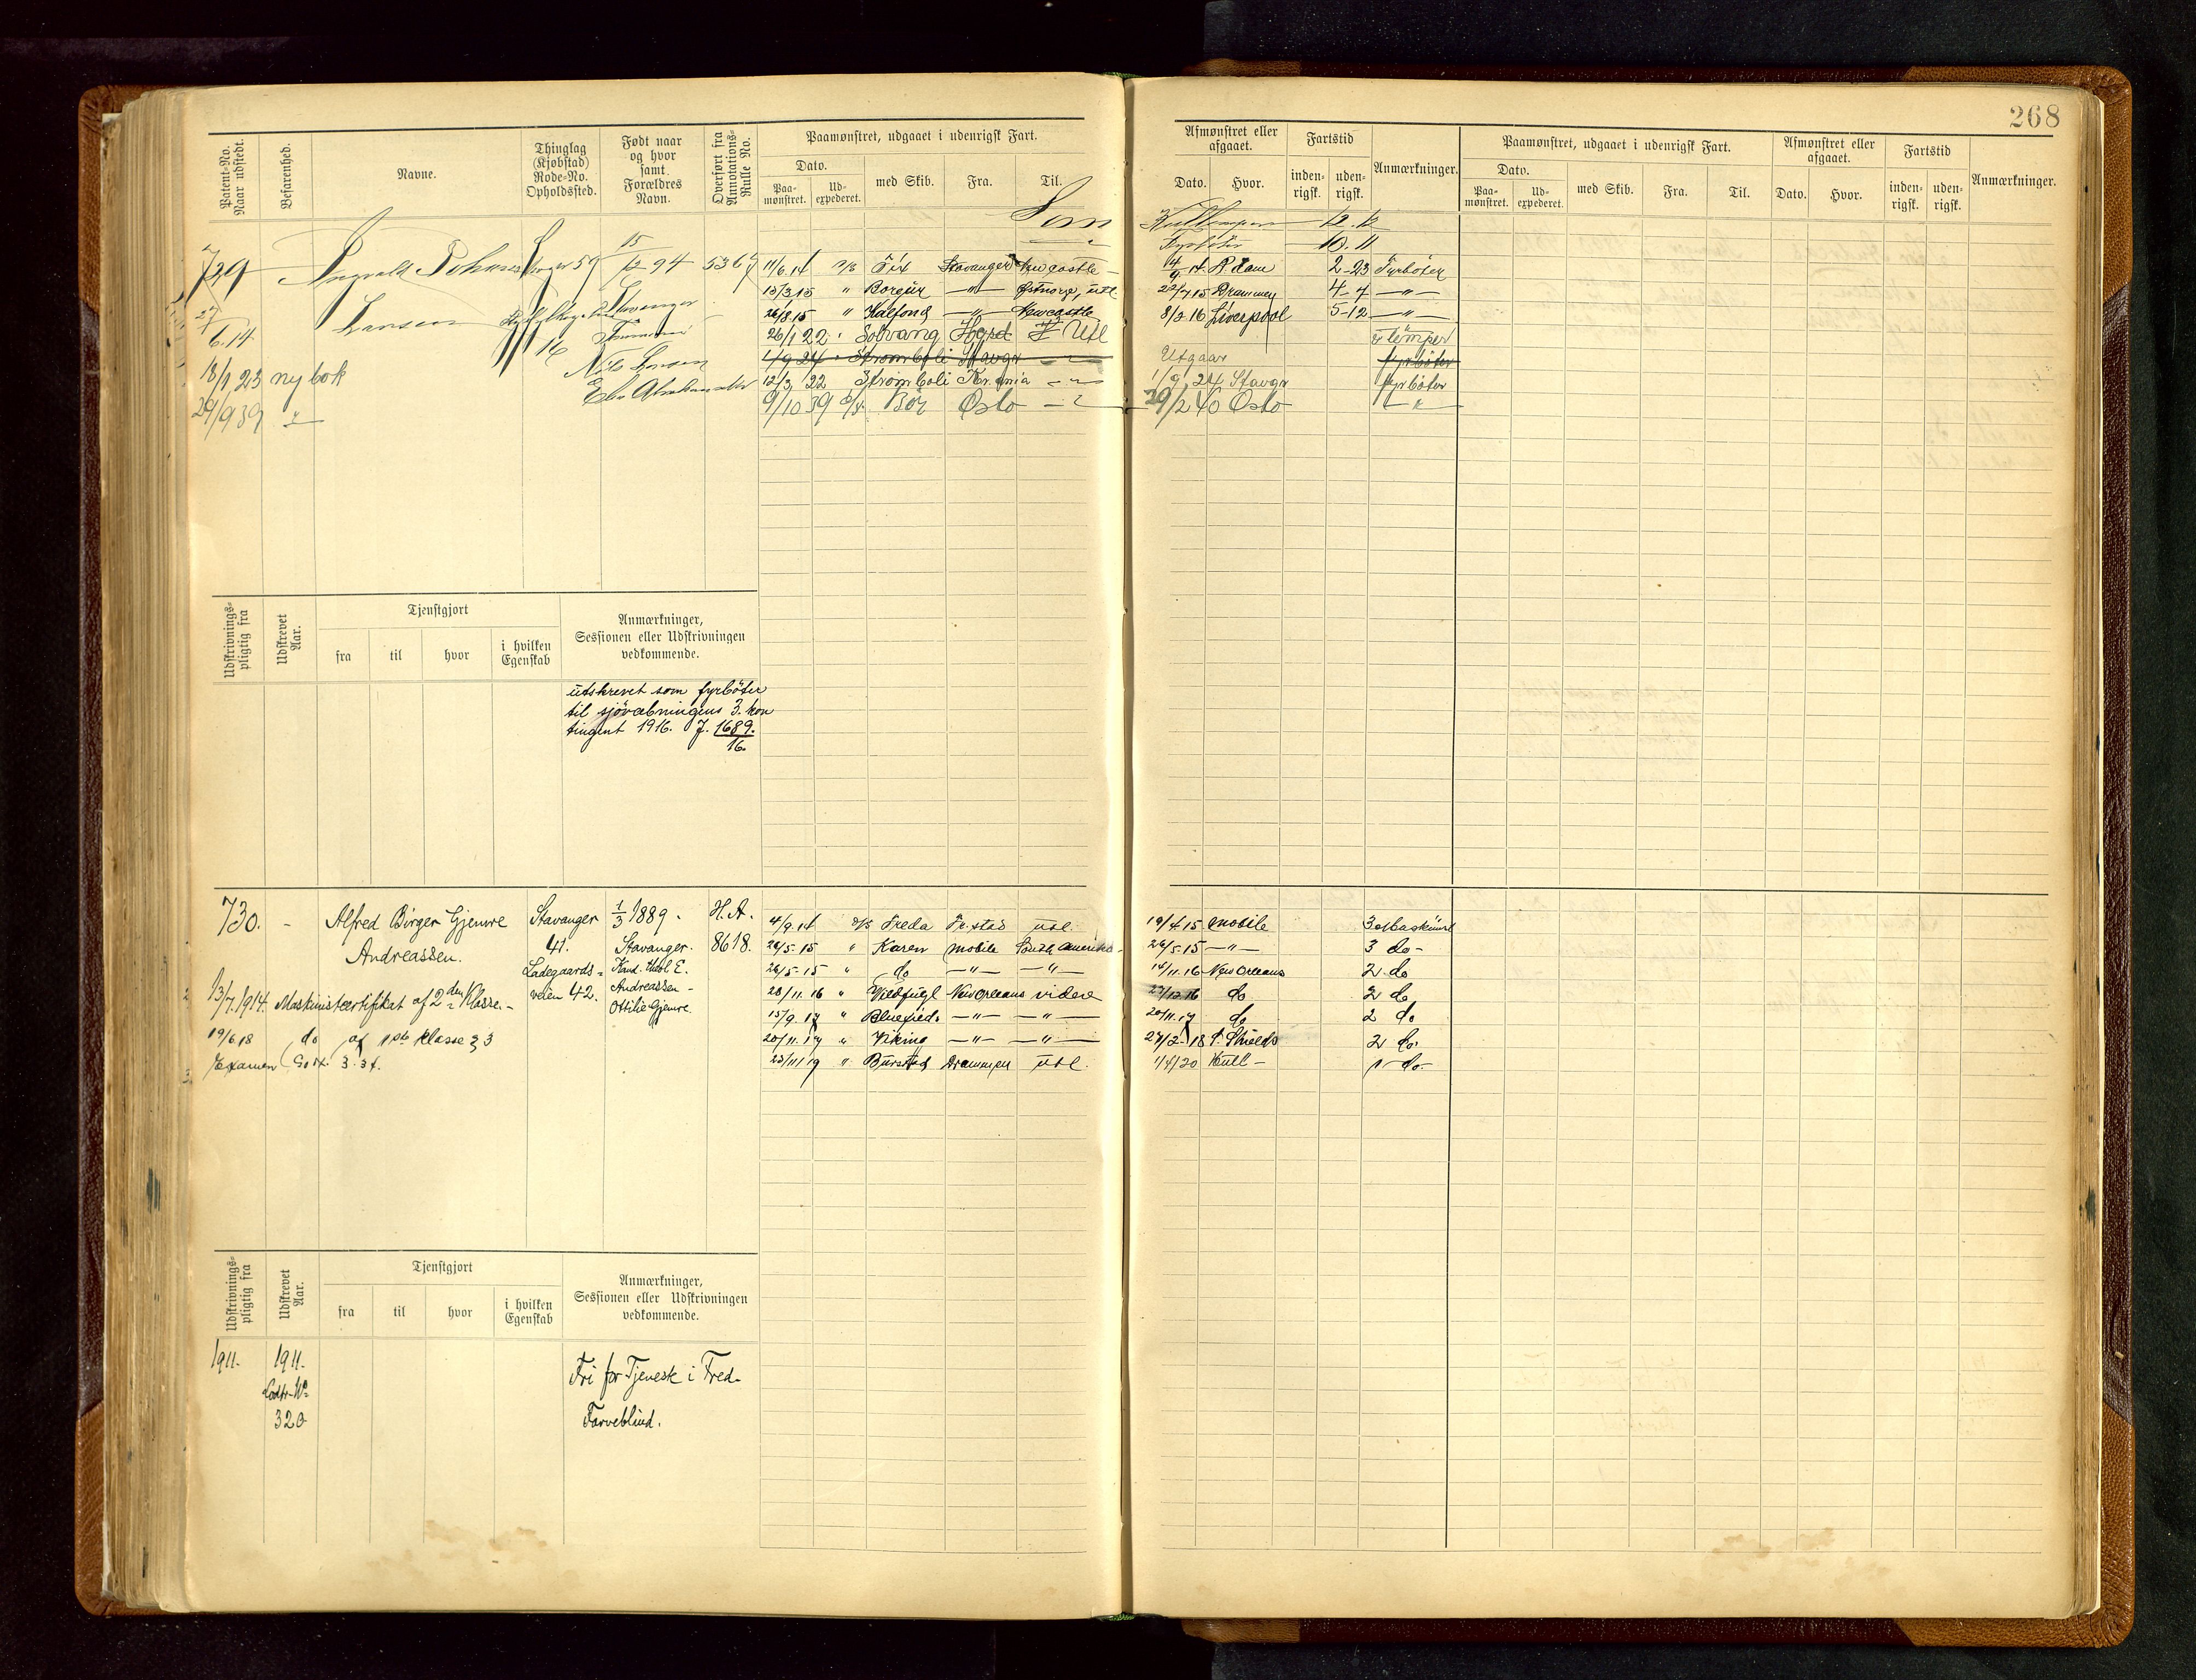 268
Patent-No. Naar udstedt.
Befarenhed.
Navne.
Thinglag (Kjøbstad) Rode-No. Opholdssted.
Født naar og hvor samt Forældres Navn.
Overført fra Annotations-Rulle No.
Paamønstret, udgaaet i udenrigsk Fart.
Dato.
Paamønstret.
Udexpederet.
med Skib.
Fra.
Til.
Afmønstret eller afgaaet.
Dato.
Hvor.
Fartstid
indenrigsk.
udenrigsk.
Anmærkninger.
Paamønstret, udgaaet i udenrigsk Fart.
Dato.
Paamønstret.
Udexpederet.
med Skib.
Fra.
Til.
Afmønstret eller afgaaet.
Dato.
Hvor.
Fartstid
indenrigsk.
udenrigsk.
Anmærkninger.
Som Kullemper 12.12
Fyrbøter 10.11
729 Ingvald Johan 59 15/12 94 5367
Larsen Stavanger
27/6.14 16
18/1 23 ny bok
29/9 39 "
11/6.14 Stavanger Newcastle R.dam 2-23 Fyrböter
13/3.15 " Østnorge, utl. 22/7.15 Drammen 4-4 —"—
26/8.15 " Kalfond —"— Newcastle 8/2.16 Liverpool 5-12 —"—
26/1 22 " Solvang Utl lemper
1/9 24 Stromboli Stavgr fyrböter
12/3 22 Stromboli Kr.ania —"— Utgaar 1/9 24 Stavgr fyrböter
9/10 39 Bör Oslo —"— 29/2 40 Oslo —"—
Udskrivningspligtig fra
Udskrevet Aar.
Tjenstgjort
fra
til
hvor
i hvilken Egenskab
Anmærkninger, Sessionen eller Udskrivningen vedkommende.
utskrevet som fyrböter
til sjövæbningens 3. kon
tingent 1916. J. 1689.
16.
730. - Alfred Birger Gjemre Stavanger 1/3 1889. H.A.
Andreassen. 41. Stavanger. 8618.
Ladegaards- E.
veien 42. Andreassen -
Ottilie Gjemre.
13/7.1914. Maskinistcertifikat af 2den Klasse. -
19/6 18 do af 1ste klasse
Examen 3.34.
4/9.14 D/S Freda Fr.stad utl. 19/4.15 Mobile 3.Maskinist
26/5.15 " Karen Mobile South Amerika 26/5.15 —"— 3 do-
26/5.15 " do —"— —"— 14/11.16 New Orleans 2 do
28/11.16 " Vildfugl New Orleans videre 27/12.16 do 2 do
15/9.17 " Bluefields —"— —"— 20/11.17 do 2 do
20/11.17 " Viking —"— —"— 27/2 18 S. Shields 2 do
23/11 19 " Burstad Drammen utl. 1/4 20 Hull - 1 do-
Udskrivningspligtig fra
Udskrevet Aar.
Tjenstgjort
fra
til
hvor
i hvilken Egenskab
Anmærkninger, Sessionen eller Udskrivningen vedkommende.
1911. 1911. Fri for Tjeneste i Fred.
Lodtr. No Farveblind.
320